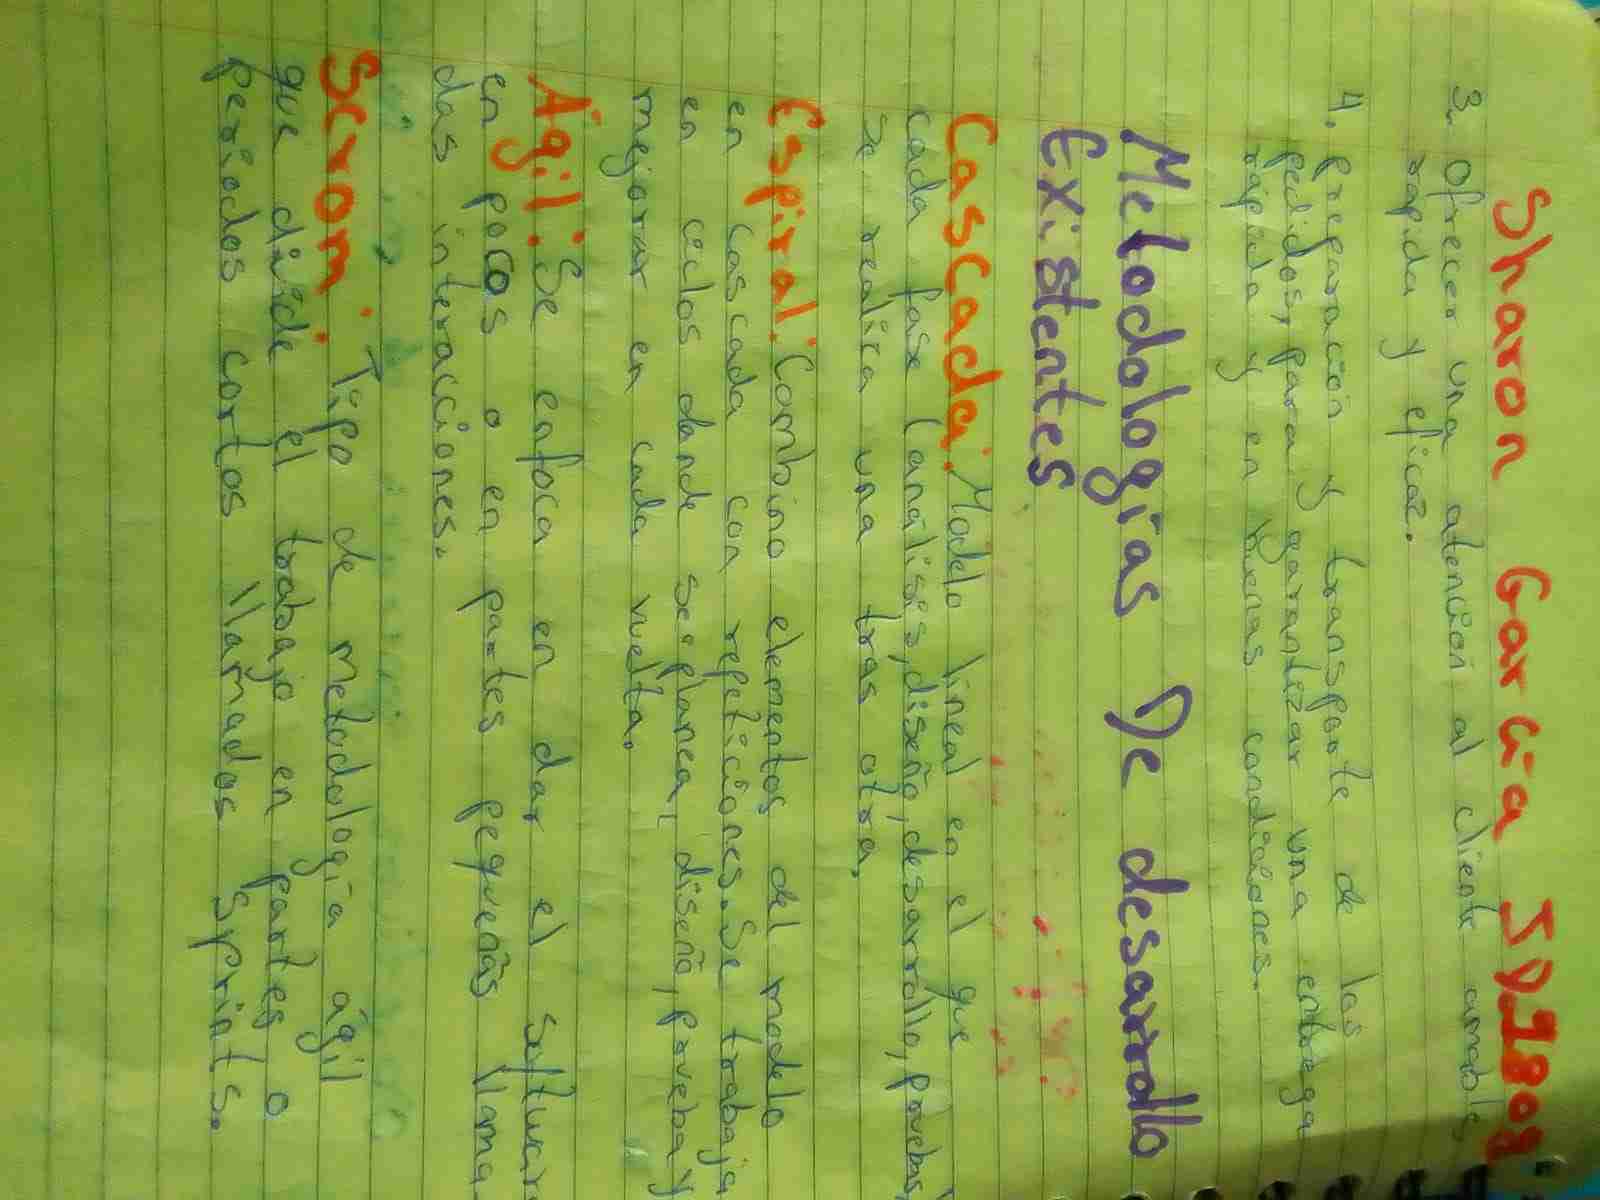 Sharon García
3. Ofrecer una atención al cliente amable,
rapida y eficaz.
4. preparación y transporte de las
pedidos, para garantizar una entrega
rápida y en buenas condiciones.
Metodologías De desarrollo
Existentes
Cascada: Modelo lineal en el que
cada fase (análisis, diseño, desarrollo, pruebas,
se realiza una tras otra.
Espiral: Combina elementos del modelo
en cascada con repeticiones. Se trabaja
en ciclos donde se planea, diseña, prueba y
mejorar en cada vuelta.
Ágil: Se enfoca en dar el software
en pocos o en partes pequeñas llama
das interaciones.
Scrom: Tipo de metodología ágil
que divide el trabajo en partes o
periodos cortos llamados Sprints.